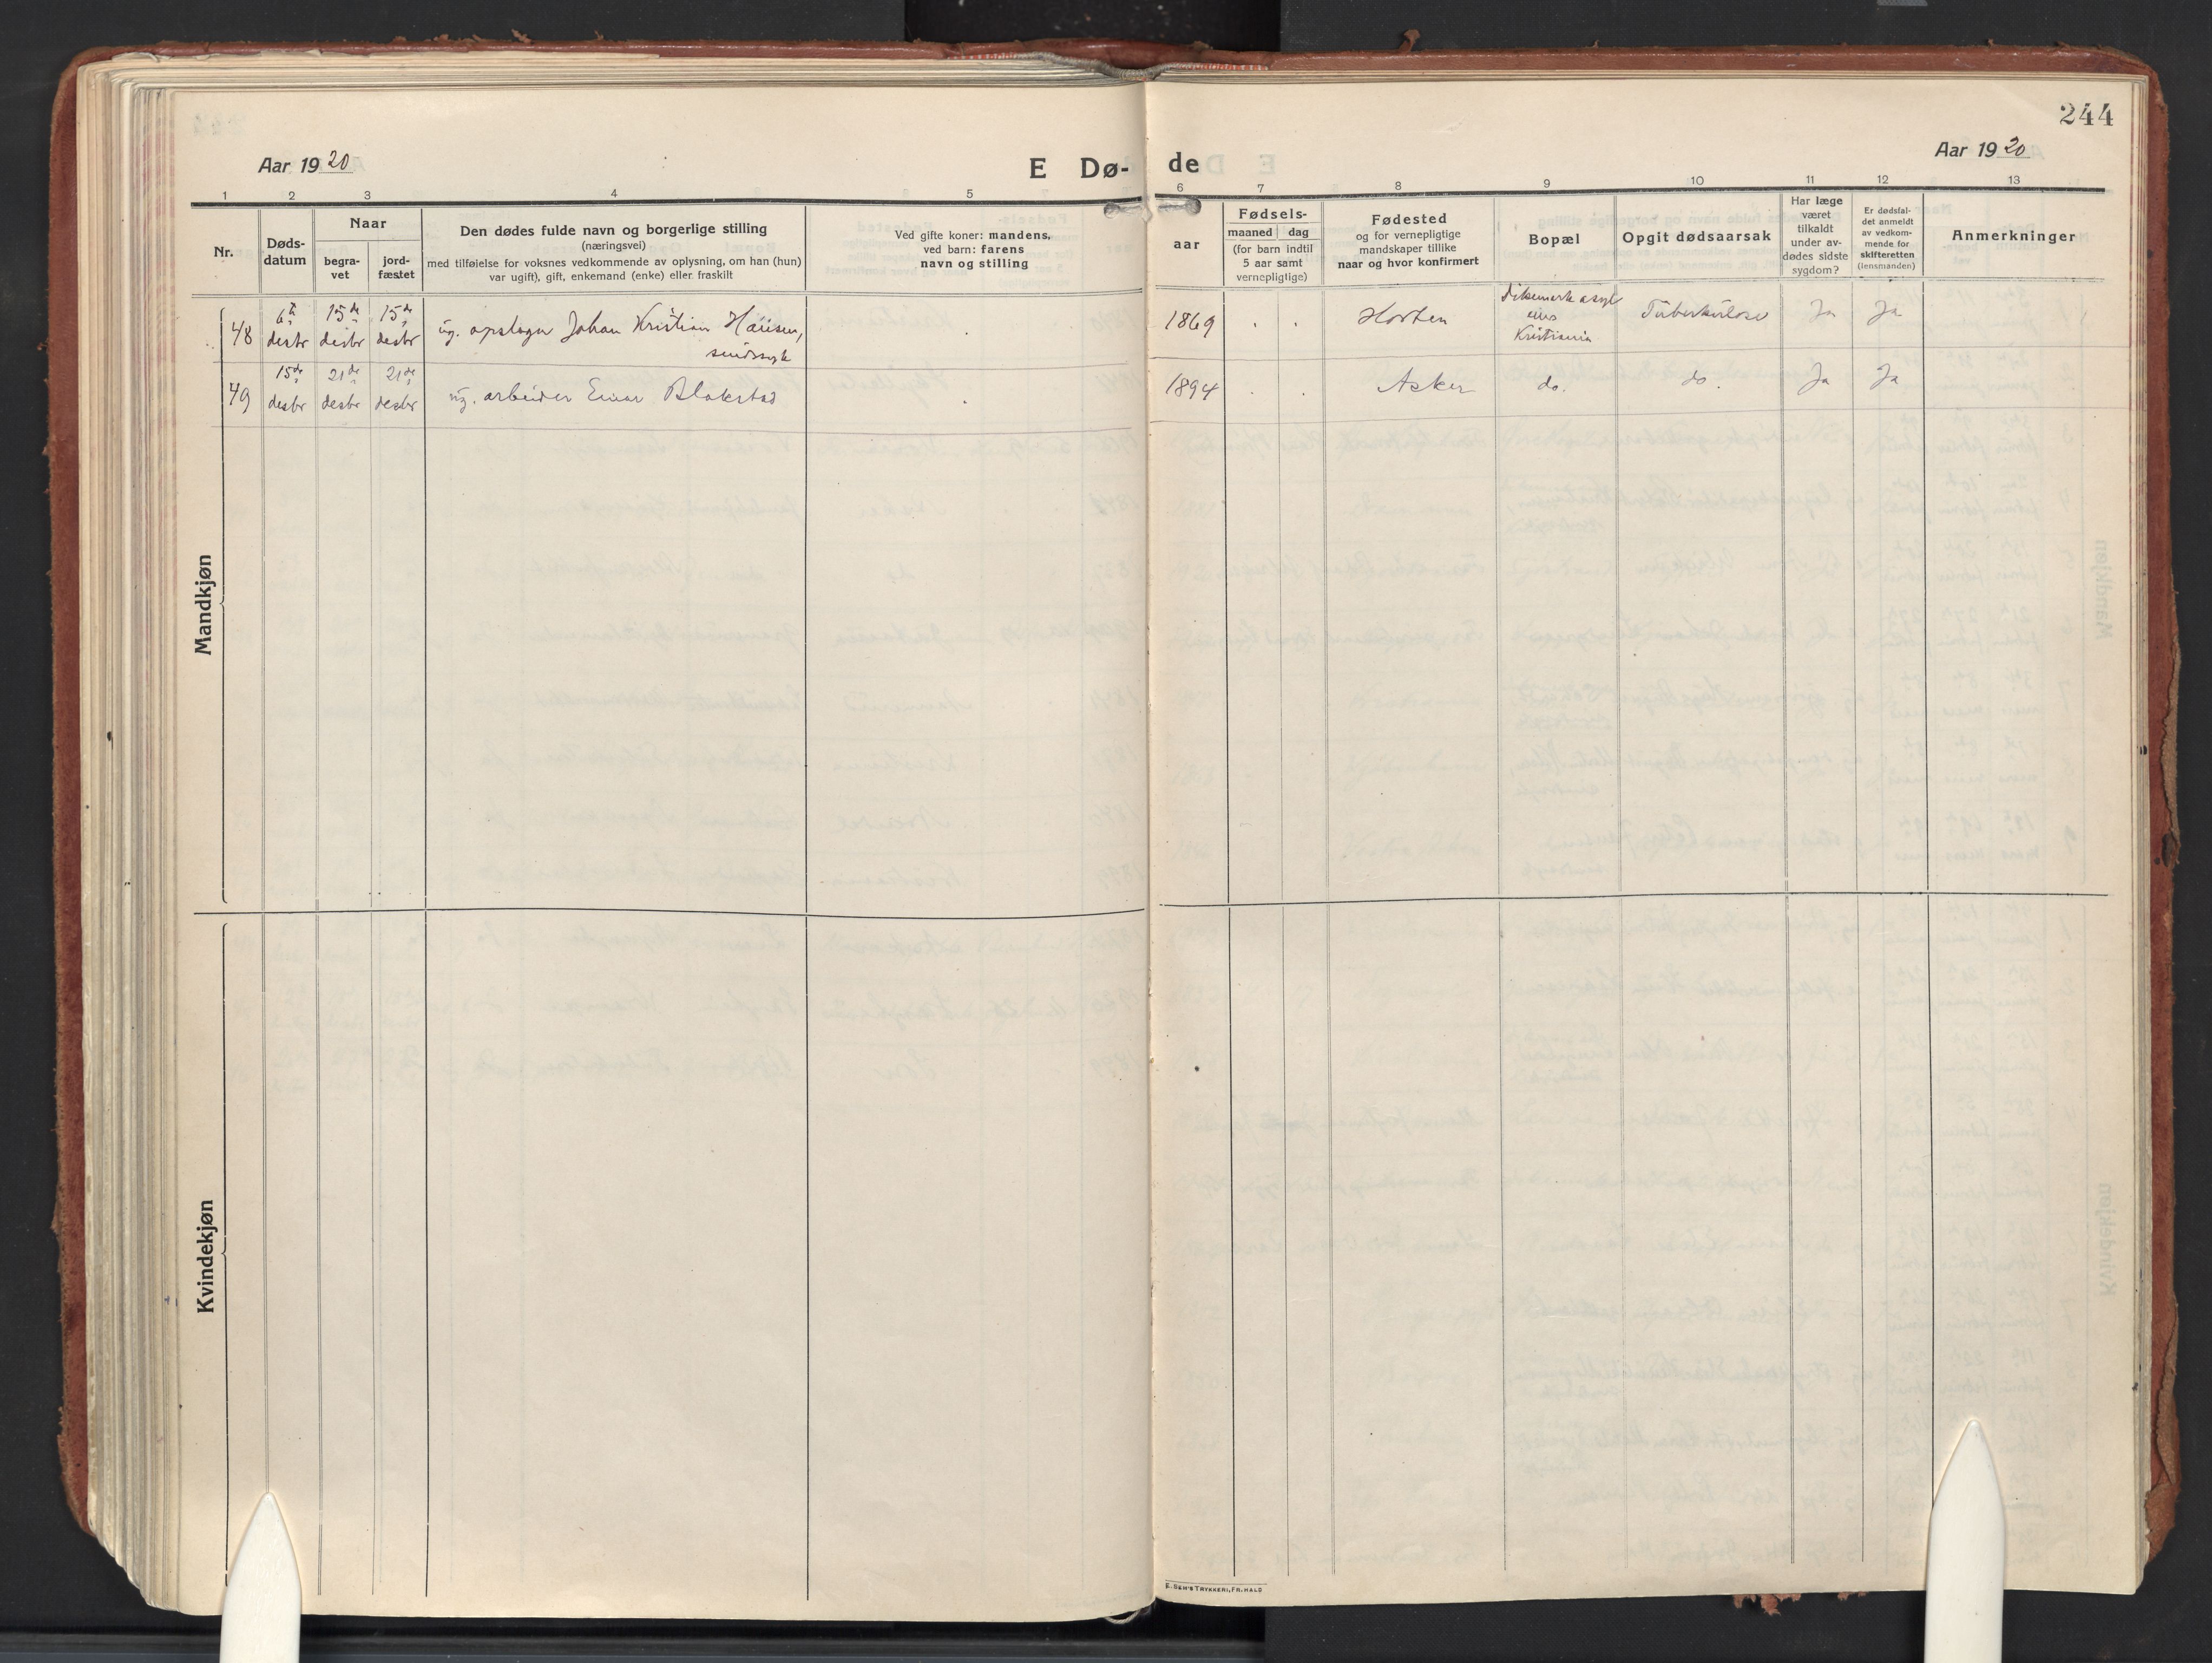 244
Aar 1920
E Dø-
de
Aar 1920
1 2 3 4 5 6 7 8 9 10 11 12 13
Nr.
Døds-
datum
Naar
begra-
vet
jord-
fæstet
Den dødes fulde navn og borgerlige stilling
(næringsvei)
med tilføielse for voksnes vedkommende av oplysning, om han (hun)
var ugift), gift, enkemand (enke) eller fraskilt
Ved gifte koner: mandens,
ved barn: farens
navn og stilling
aar
Fødsels-
maaned dag
(for barn indtil
5 aar samt
vernepligtige)
Fødested
og for vernepligtige
mandskaper tillike
naar og hvor konfirmert
Bopæl
Opgit dødsaarsak
Har læge
været
tilkaldt
under av-
dødes sidste
sygdom?
Er dødsfal-
det anmeldt
av vedkom-
mende for
skifteretten
(lensmanden)
Anmerkninger
Mandkjøn
48
6te
desbr
15de
desbr
15de
desbr
ug. opsløger Johan Kristian Hansen,
sindssyk
1869 . .
Horten
Dikemark asyl
Kristiania
Tuberkulose
Ja
Ja
49
15de
desbr
21de
desbr
21de
desbr
ug. arbeider Einar Blakstad
1894 . .
Asker
do.
do.
Ja
Ja
Kvindekjøn
E. SEM'S TRYKKERI, FR. HALD